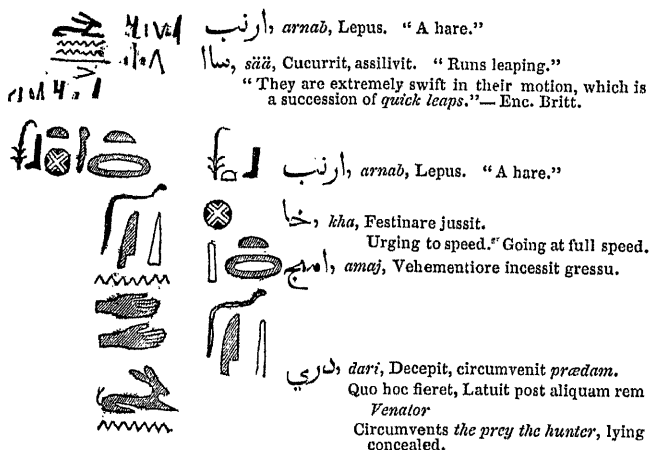 ارنب, arnab, Lepus. “A hare.”
ساا, sää, Cucurrit, assilivit. “Runs leaping.”
“They are extremely swift in their motion, which is
a succession of quick leaps.”— Enc. Britt.
ارنب, arnab, Lepus. “A hare.”
خا, kha, Festinare jussit.
Urging to speed. Going at full speed.
امهج, amaj, Vehementiore incessit gressu.
دري, dari, Decepit, circumvenit prædam.
Quo hoc fieret, Latuit post aliquam rem
Venator
Circumvents the prey the hunter, lying
concealed.